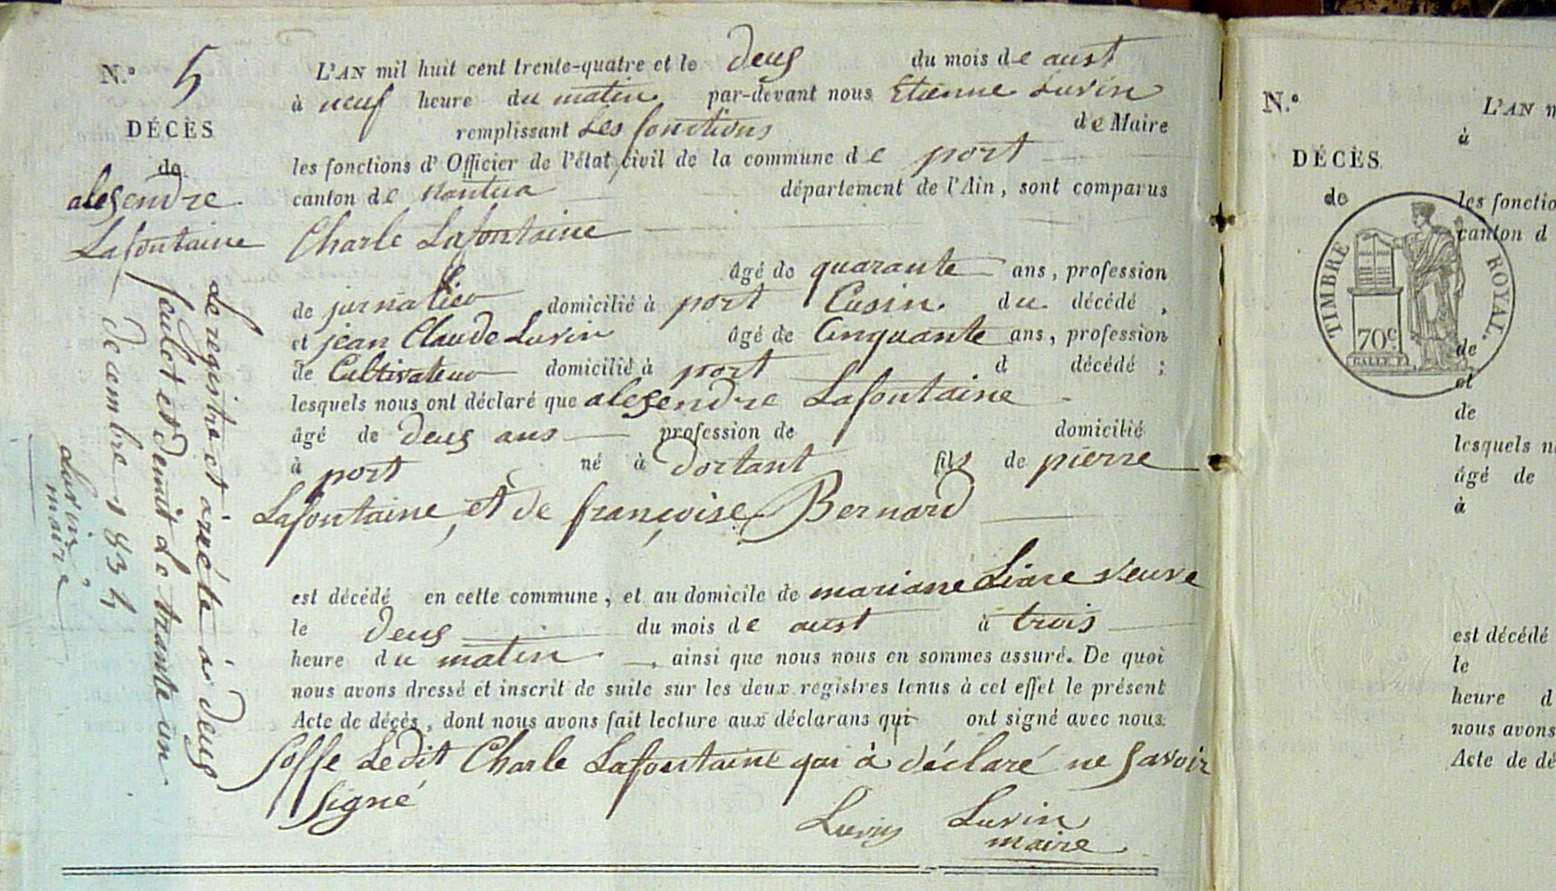 N.º 5
DÉCÈS
de
alexendre
Lafontaine
L'AN mil huit cent trente-quatre et le deux du mois de aust
à neuf heure du matin par-devant nous Etienne Luvin
remplissant Les fonctions de Maire
les fonctions d'Officier de l'état civil de la commune de port
canton de Nantua département de l'Ain, sont comparus
Charle Lafontaine
âgé de quarante ans, profession
de jurnalier domicilié à port Cusin du décédé,
et jean Claude Luvin âgé de Cinquante ans, profession
de Cultivateur domicilié à port d décédé;
lesquels nous ont déclaré que alexendre Lafontaine
âgé de deux ans profession de domicilié
à port né à dortant fils de pierre
Lafontaine, et de françoise Bernard
est décédé en cette commune, et au domicile de mariane veuve
le deux du mois de aust à trois
heure du matin, ainsi que nous nous en sommes assuré. De quoi
nous avons dressé et inscrit de suite sur les deux registres tenus à cet effet le présent
Acte de décès, dont nous avons fait lecture aux déclarans qui ont signé avec nous
soffe Ledit Charle Lafontaine qui à déclaré ne savoir
signé
Luvin Luvin
maire
Le registre et arrêté à deux
feulet et demit le trante un
decembre 1834
Luvin
maire
N.º
DÉCÈS
de
TIMBRE ROYAL.
70c
L'AN m
à
les fonctio
canton d
de
et
de
lesquels n
âgé de
à
est décédé
le
heure d
nous avons
Acte de dé